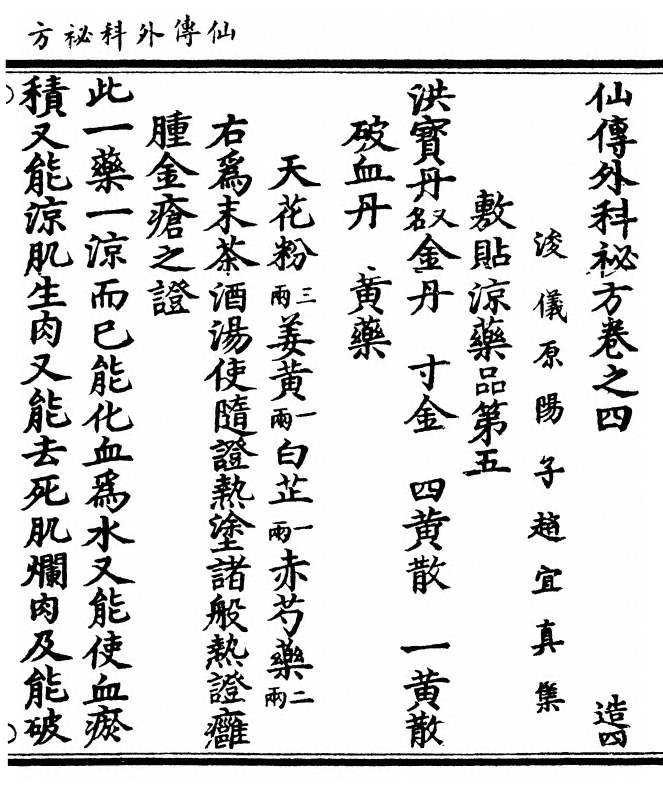 仙傳外科祕方
仙傳外科祕方卷之四 造四
浚儀原陽子趙宜真集
敷貼涼藥品第五
洪寶丹又名金丹 寸金 四黄散 一黄散
破血丹 黄藥
天花粉三兩姜黄一兩白芷一兩赤芍藥二兩
右爲末茶酒湯使隨證熱塗諸般熱證癰
腫金瘡之證
此一藥一涼而已能化血爲水又能使血瘀
積又能涼肌生肉又能去死肌爛肉及能破